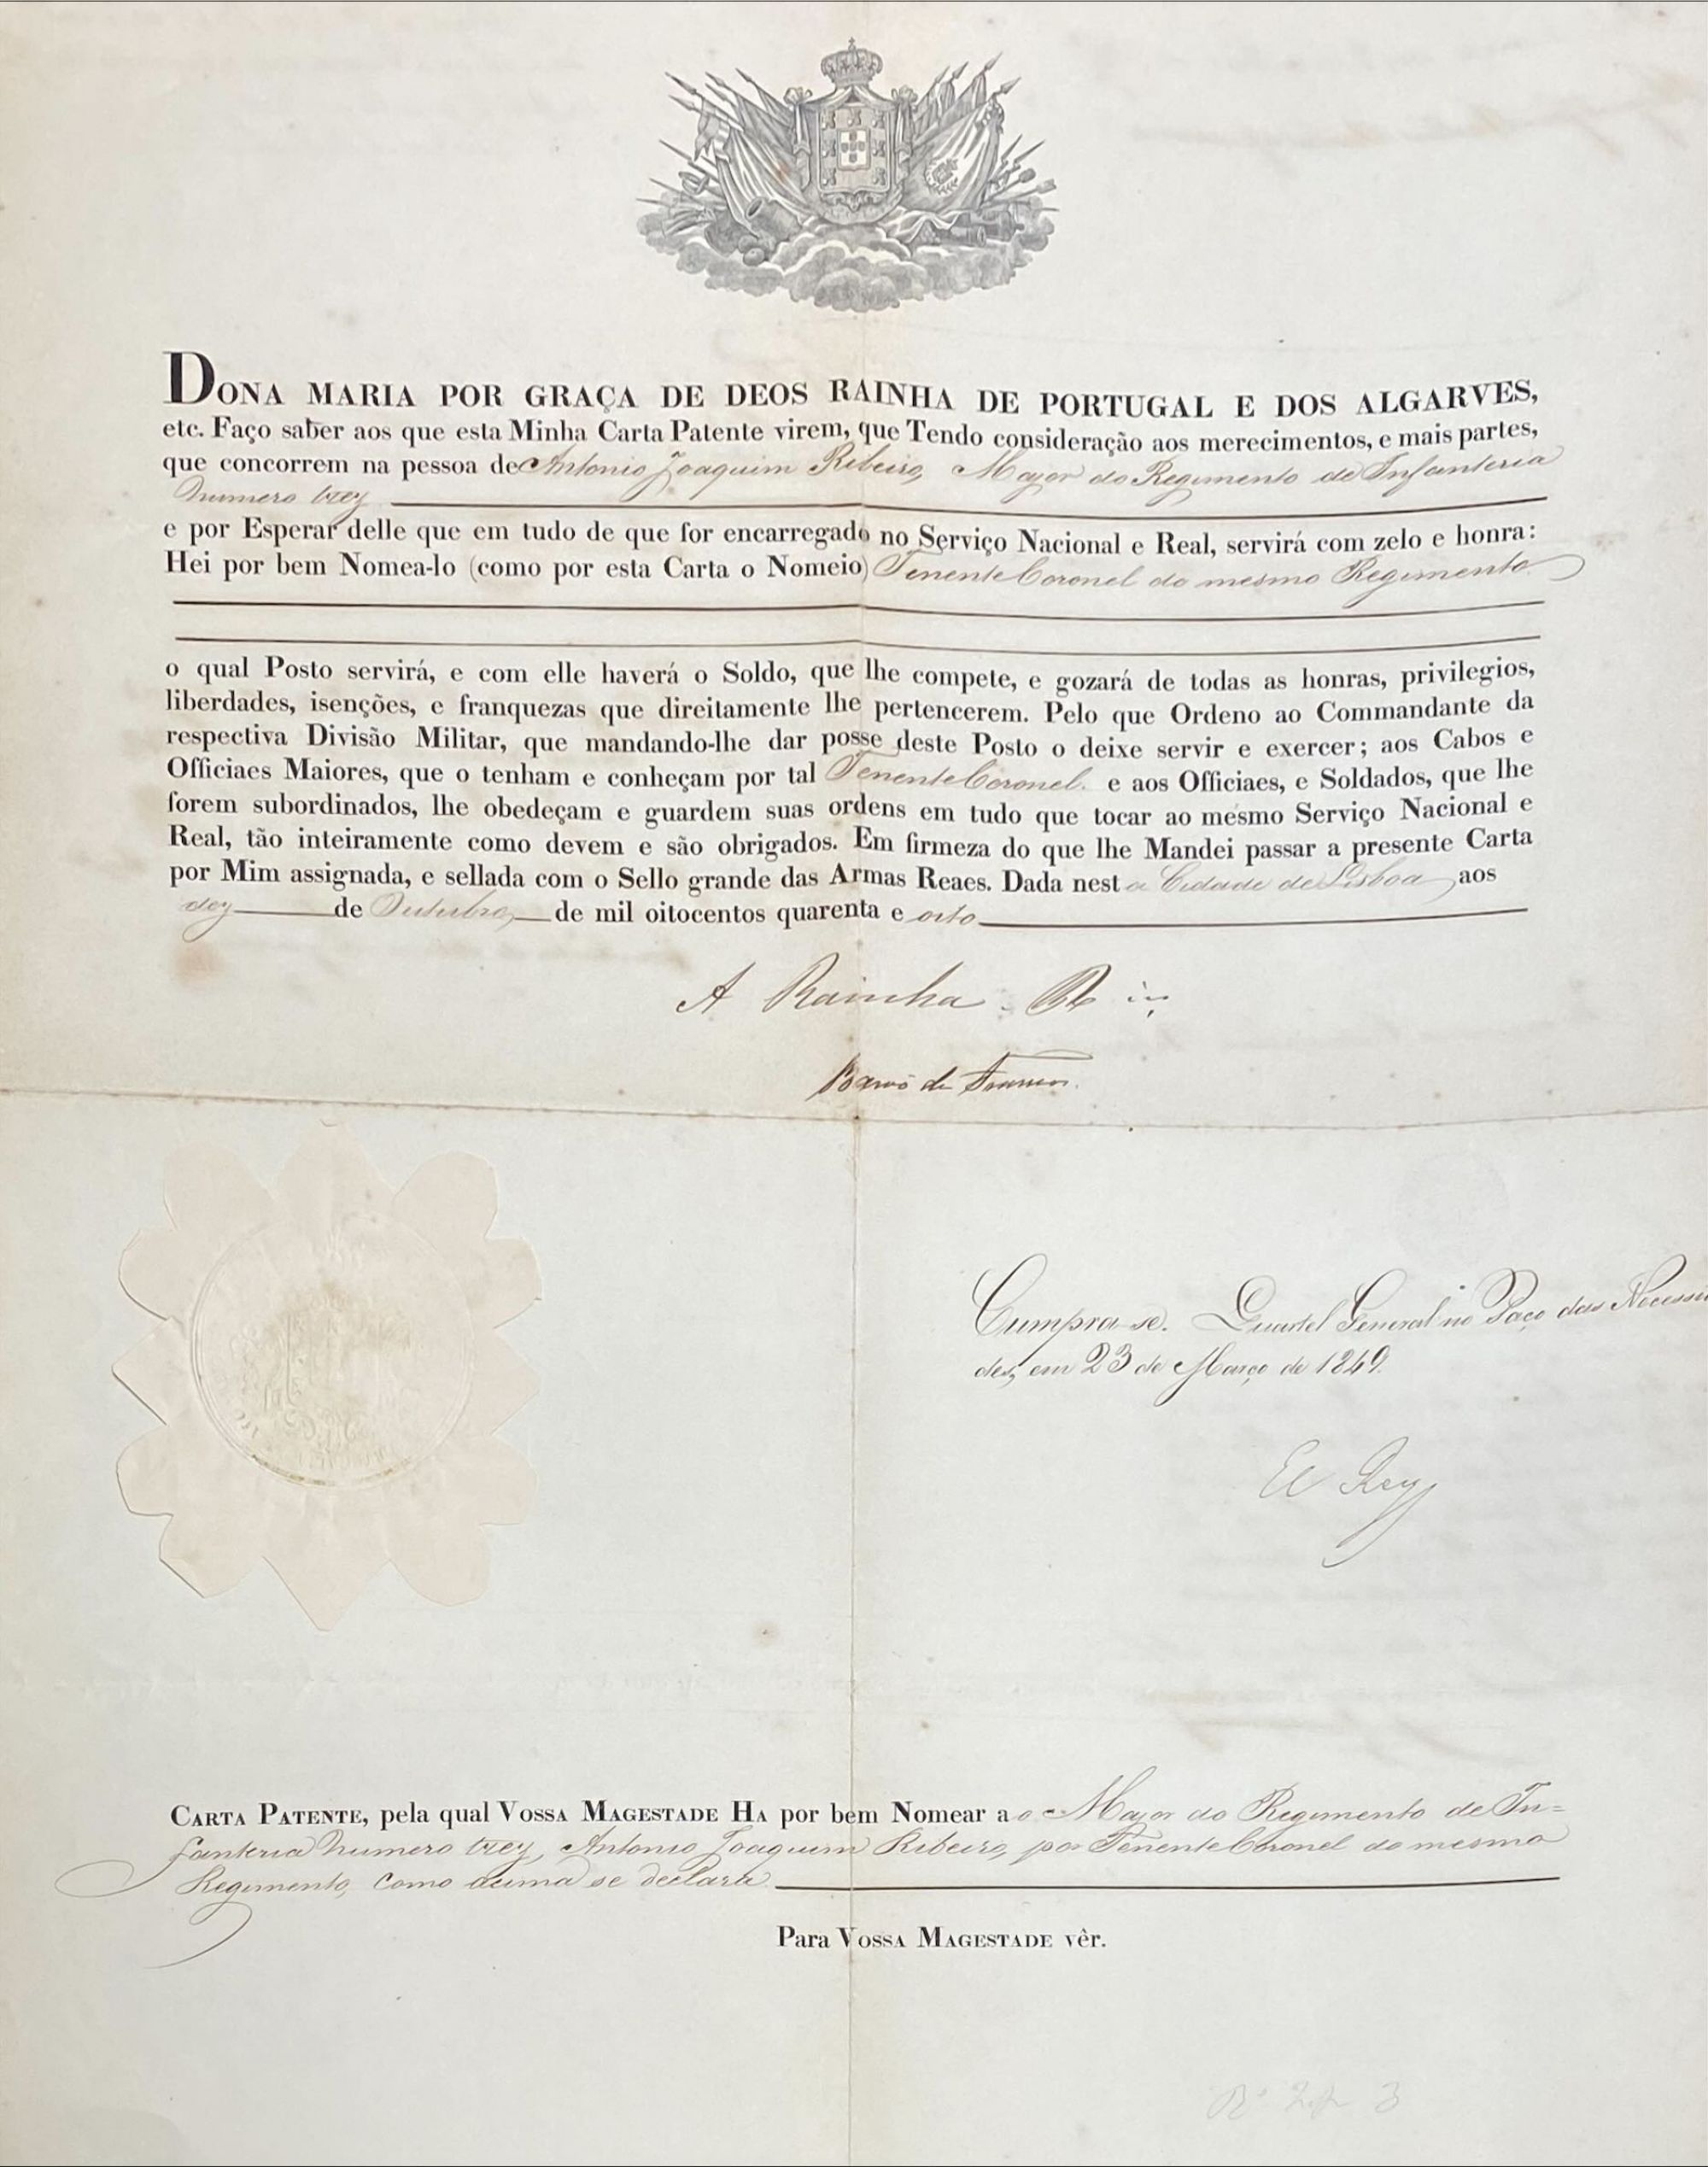 DONA MARIA POR GRAÇA DE DEOS RAINHA DE PORTUGAL E DOS ALGARVES,
etc. Faço saber aos que esta Minha Carta Patente virem, que Tendo consideração aos merecimentos, e mais partes,
que concorrem na pessoa de Antonio Joaquim Ribeiro, Major do Regimento de Infanteria
Numero trez
e por Esperar delle que em tudo de que for encarregado no Serviço Nacional e Real, servirá com zelo e honra:
Hei por bem Nomea-lo (como por esta Carta o Nomeio) Tenente Coronel do mesmo Regimento
o qual Posto servirá, e com elle haverá o Soldo, que lhe compete, e gozará de todas as honras, privilegios,
liberdades, isenções, e franquezas que direitamente lhe pertencerem. Pelo que Ordeno ao Commandante da
respectiva Divisão Militar, que mandando-lhe dar posse deste Posto o deixe servir e exercer; aos Cabos e
Officiaes Maiores, que o tenham e conheçam por tal Tenente Coronel. e aos Officiaes, e Soldados, que lhe
forem subordinados, lhe obedeçam e guardem suas ordens em tudo que tocar ao mesmo Serviço Nacional e
Real, tão inteiramente como devem e são obrigados. Em firmeza do que lhe Mandei passar a presente Carta
por Mim assignada, e sellada com o Sello grande das Armas Reaes. Dada nesta Cidade de Lisboa, aos
dez de Outubro, de mil oitocentos quarenta e oito
A Rainha
Barão de
Cumpra-se. Quartel General no Paço das Necessi
des, em 23 de Março de 1849.
El Rey
CARTA PATENTE, pela qual VOSSA MAGESTADE HA por bem Nomear ao Major do Regimento de In=
fanteria Numero trez, Antonio Joaquim Ribeiro, por Tenente Coronel do mesmo
Regimento, como acima se declara.
Para VOSSA MAGESTADE vêr.